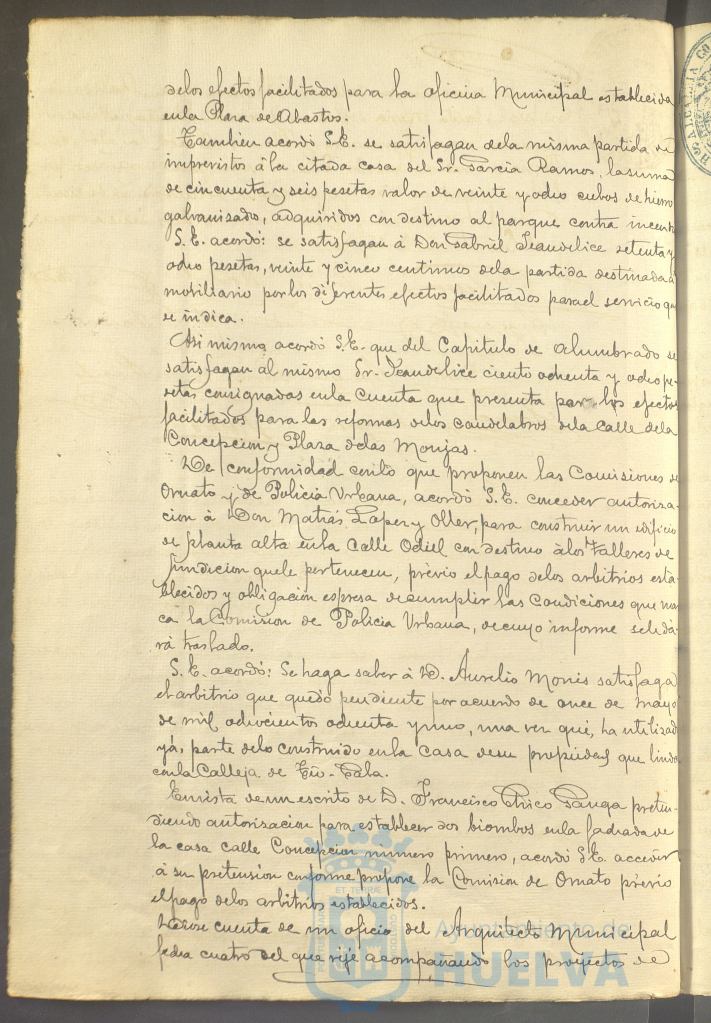 delos efectos facilitados para la oficina Municipal establecida
enla Plaza de Abastos.
Tambien acordó S.E. se satisfagan dela misma partida de
imprevistos á la citada casa del Sr. Garcia Ramos, la suma
de cincuenta y seis pesetas valor de veinte y ocho cubos de hierro
galvanizado, adquiridos con destino al parque contra incend
S.E. acordó: se satisfagan á Don Gabriel Jeandelice setenta y
ocho pesetas, veinte y cinco centimos dela partida destinada á
mobiliario por los diferentes efectos facilitados para el servicio que
se indica.
Asi mismo, acordó S.E. que del Capitulo de alumbrado se
satisfagan al mismo Sr. Jeandelice ciento ochenta y ocho pe-
setas consignadas enla cuenta que presenta por los efectos
facilitados para las reformas delos candelabros dela calle dela
Concepcion y Plaza delas Monjas.
De conformidad conlo que proponen las Comisiones de
Ornato y de Policia Urbana, acordó S.E. conceder autoriza-
cion á Don Matias Lopez y Oller, para construir un edificio
de planta alta enla Calle Odiel con destino álos talleres de
fundicion quele pertenecen, prévio el pago delos arbitrios esta-
blecidos y obligacion espresa decumplir las Condiciones que mar
ca la Comision de Policia Urbana, decuyo informe sele da-
rá traslado.
S.E. acordó: Se haga saber á D. Aurelio Monis satisfaga
el arbitrio que quedó pendiente por acuerdo de once de mayo
de mil ochocientos ochenta y uno, una vez que, ha utilizad
yá, parte delo construido enla casa desu propiedad que linda
conla Calleja de
Envista de un escrito de D. Francisco Chico Ganga preten-
diendo autorizacion para establecer dos biombos enla fachada de
la casa calle Concepcion numero primero, acordó S.E. acceder
á su pretension conforme propone la Comision de Ornato prévio
el pago delos arbitrios establecidos.
Diose cuenta de un oficio del Arquitecto Municipal
fecha cuatro del que rije acompañando los proyectos de
Ayuntamiento de
HUELVA